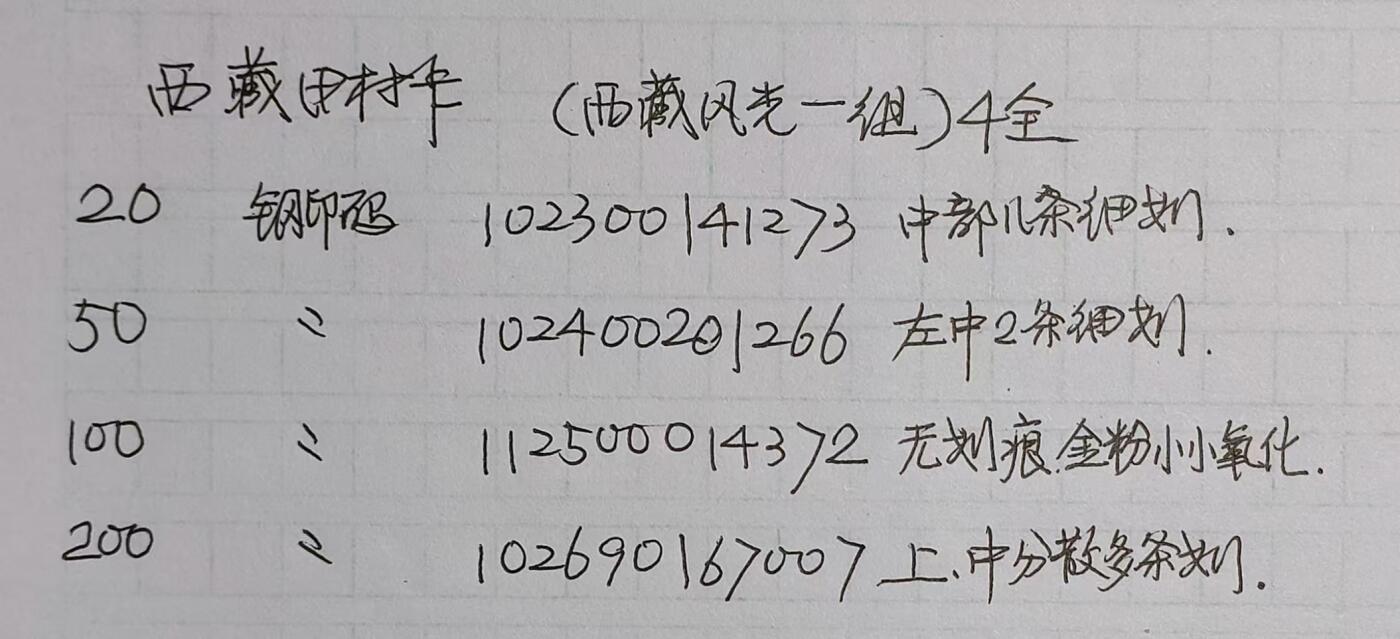 西藏田村卡 (西藏风光一组)4全
20 钢印码 102300141273 中部几条细划.
50 〃 102400201266 左中2条细划.
100 〃 112500014372 无划痕.金粉小小氧化.
200 〃 102690167007 上、中分散多条划.